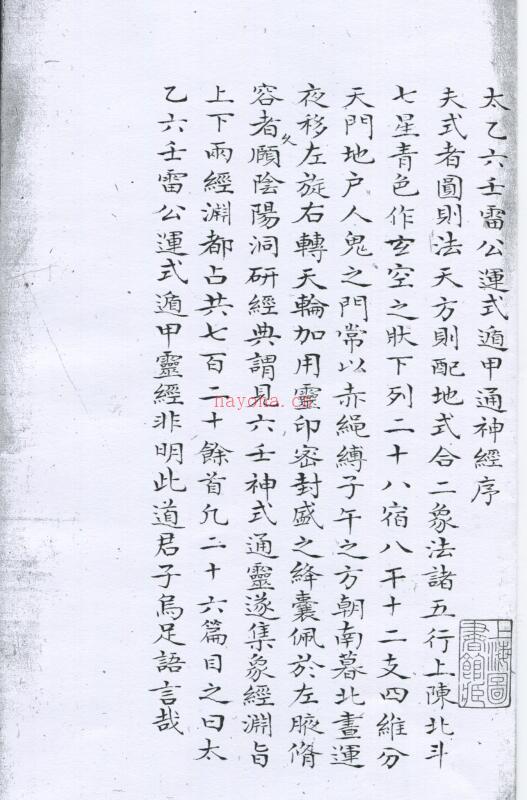 太乙六壬雷公運式遁甲通神經序
夫式者圓則法天方則配地式合二象法諸五行上陳北斗
七星青色作玄空之狀下列二十八宿八干十二支四維分
天門地户人鬼之門常以赤繩縛子午之方朝南暮北晝運
夜移左旋右轉天輪加用靈印密封盛之絳囊佩於左腋脩
容者久願陰陽洞研經典謂見六壬神式通靈遂集象經淵旨
上下兩經淵都占共七百二十餘首凡二十六篇目之曰太
乙六壬雷公運式遁甲靈經非明此道君子烏足語言哉
上海圖書館藏
nayona.cn